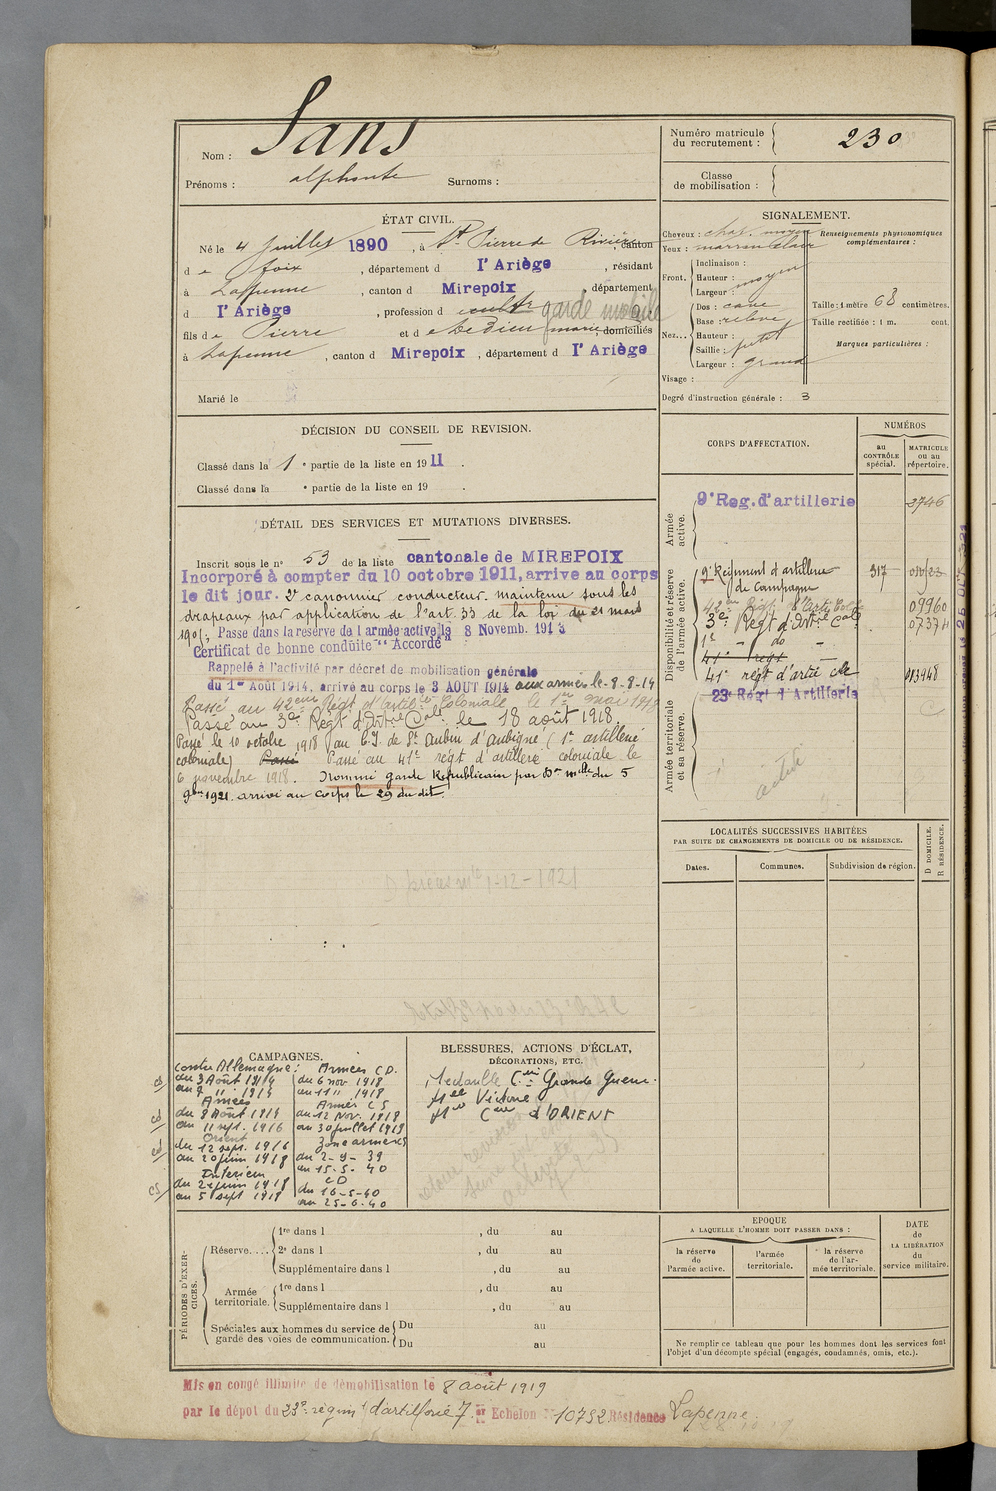 Nom : Sans
Prénoms : alphonse Surnoms :
Numéro matricule du recrutement : 230
Classe de mobilisation :
ÉTAT CIVIL.
Né le 4 Juillet 1890, à St Pierre de Rivière, canton
de Foix, département d l'Ariège, résidant
à Lapenne, canton d Mirepoix, département
d l'Ariège, profession d cultr garde mobile
fils de Pierre et de domiciliés
à Lapenne, canton d Mirepoix, département d l'Ariège
Marié le
SIGNALEMENT.
Cheveux : chat. moyen
Yeux : marron clair
Renseignements physionomiques complémentaires :
Front. Inclinaison :
Hauteur : moyen
Largeur :
Nez... Dos : cave
Base : relevé
Hauteur :
Saillie : petit
Largeur : grand
Visage :
Taille : 1 mètre 68 centimètres.
Taille rectifiée : 1 m. cent.
Marques particulières :
Degré d'instruction générale : 3
DÉCISION DU CONSEIL DE REVISION.
Classé dans la 1e partie de la liste en 1911.
Classé dans la e partie de la liste en 19 .
DÉTAIL DES SERVICES ET MUTATIONS DIVERSES.
Inscrit sous le n° 53 de la liste cantonale de MIREPOIX
Incorporé à compter du 10 octobre 1911, arrive au corps
le dit jour. 2e canonnier conducteur. maintenu sous les
drapeaux par application de l'art. 33 de la loi du 21 mars
1905. Passe dans la réserve de l'armée active le 8 Novemb. 1913
Certificat de bonne conduite "Accordé"
Rappelé à l'activité par décret de mobilisation générale
du 1er Août 1914, arrivé au corps le 3 AOUT 1914 aux armées le 8-8-14
Passé au 42eme Régt d'artille Coloniale le 1er mai
Passé au 3e Régt d'Artrie Colle le 18 août 1918
Passé le 10 octobre 1918 au C.I. de St Aubin d'Aubigné (1er artillerie
coloniale) Passé Passé au 41e régt d'artillerie coloniale le
6 novembre 1918. Nommé garde Républicain par Don mlle du 5
9bre 1921. arrivé au corps le 29 du dit.
1-12-1921
CORPS D'AFFECTATION.
NUMÉROS
au CONTRÔLE spécial.
MATRICULE ou au répertoire.
Armée active.
9e Reg. d'artillerie 3746
Disponibilité et réserve de l'armée active.
9e Régiment d'artillerie de Campagne 317
42e Régt d'Artie Cole 09960
3e Régt d'Artie Cole 07374
1er do
41e régt
41e régt d'artie cle 013948
Armée territoriale et sa réserve.
23e Régt d'Artillerie
LOCALITÉS SUCCESSIVES HABITÉES
PAR SUITE DE CHANGEMENTS DE DOMICILE OU DE RÉSIDENCE.
Dates. Communes. Subdivision de région. D DOMICILE. R RÉSIDENCE.
CAMPAGNES.
Contre Allemagne :
du 3 Août 1914
au 7 " 1914
Armées
du 8 Août 1914
au 11 sept. 1916
Orient
du 12 sept. 1916
au 20 juin 1918
Intérieur
du 21 juin 1918
au 5 sept 1918
Armées C D.
du 6 nov. 1918
au 11 " 1918
Armées C S
du 12 Nov. 1918
au 30 juillet 1919
Zone armées
du 2-9-39
au 15-5-40
C D
du 16-5-40
au 25-6-40
BLESSURES, ACTIONS D'ÉCLAT,
DÉCORATIONS, ETC.
Medaille Cve Grande Guerre.
Mlle Victoire
Mlle Cve d'ORIENT
PÉRIODES D'EXERCICES.
Réserve.... 1re dans l , du au
2e dans l , du au
Supplémentaire dans l , du au
Armée territoriale. 1re dans l , du au
Supplémentaire dans l , du au
Spéciales aux hommes du service de garde des voies de communication. Du au
Du au
EPOQUE
A LAQUELLE L'HOMME DOIT PASSER DANS :
la réserve de l'armée active.
l'armée territoriale.
la réserve de l'armée territoriale.
DATE de LA LIBÉRATION du service militaire.
Ne remplir ce tableau que pour les hommes dont les services font
l'objet d'un décompte spécial (engagés, condamnés, omis, etc.).
Mis en congé illimité de démobilisation le 8 août 1919
par le dépôt du 23e régim d'artillerie 7. Echelon 10752. Résidence Lapenne.